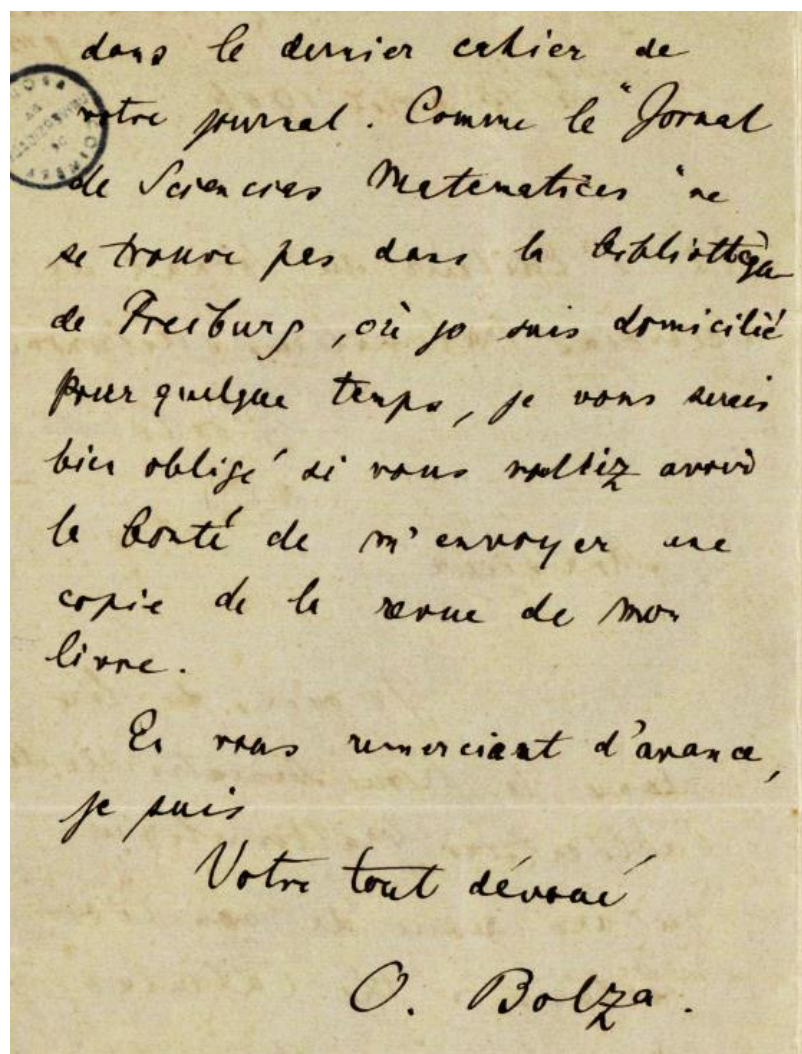 dans le dernier cahier de
votre journal. Comme le "Jornal
de Sciencias Matematices" ne
se trouve pas dans la bibliothèque
de Freiburg, où je suis domicilié
pour quelque temps, je vous serais
bien obligé si vous vouliez avoir
la bonté de m'envoyer une
copie de la revue de mon
livre.
En vous remerciant d'avance,
je suis
Votre tout dévoué
O. Bolza.